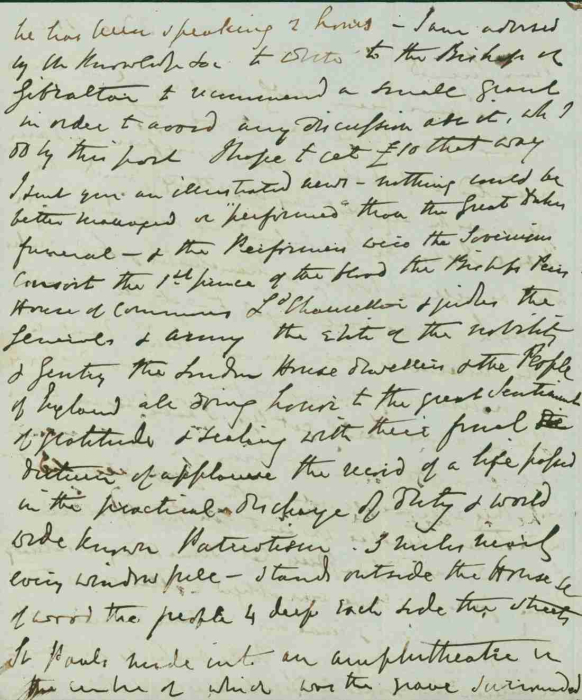 he has been speaking 2 hours - I am advised
by the Knowledge Soc to write to the Bishop of
Gibraltar to recommend a small grant
in order to avoid any discussion abt it, wh I
do by this post I hope to get £10 that way
I send you an illustrated news - nothing could be
better managed or "performed" than the Great Dukes
funeral - & the Performers were the Sovereigns
Consort the 1st prince of the blood the Bishops Peers
House of Commons Ld Chancellor & judges the
Generals & army the elite of the nobility
& Gentry the London House dwellers & the People
of England all doing honor to the great Sentiment
of gratitude & sealing with their final
dictum of applause the record of a life passed
in the practical discharge of Duty & world
wide known Patriotism. 3 miles nearly
every window full - stands outside the Houses &c
of wood the people 4 deep each side the streets
St Pauls made into an amphitheatre in
the centre of which was the grave surrounded